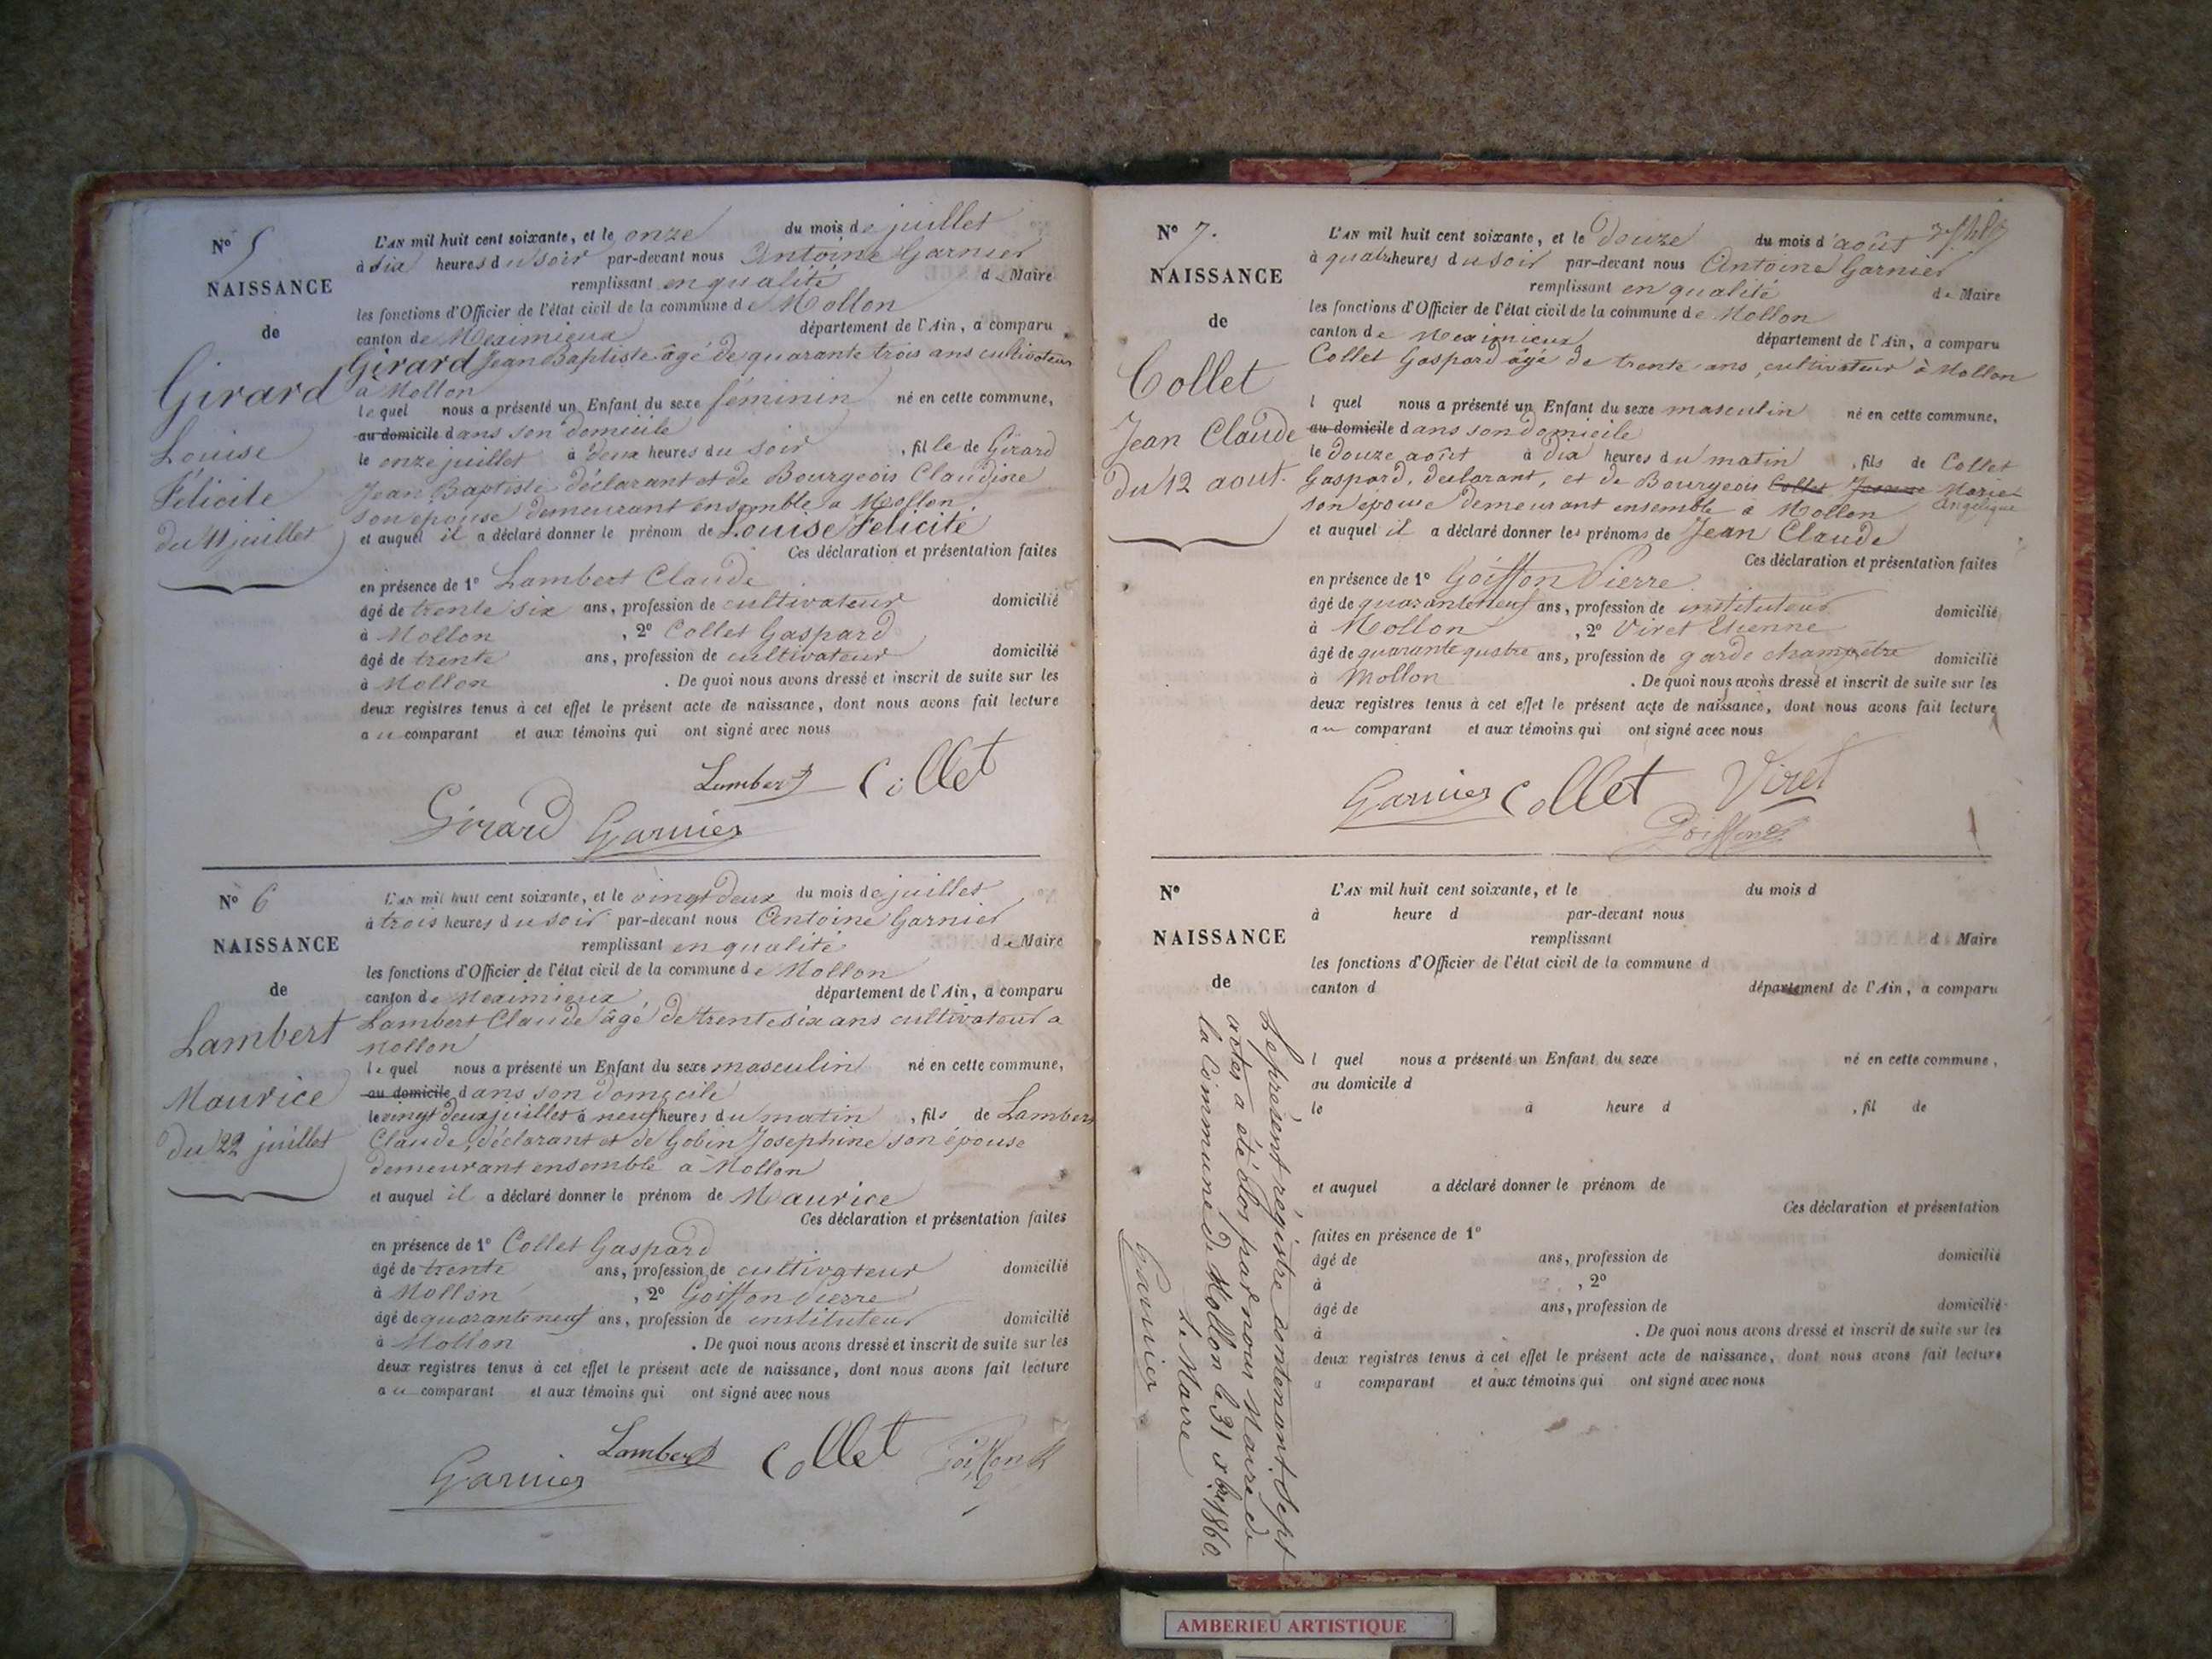 N° 5
NAISSANCE
de
Girard
Louise
Félicité
du 11 juillet
L'AN mil huit cent soixante, et le onze du mois de juillet
à dix heures du soir par-devant nous Antoine Garnier
remplissant en qualité de Maire
les fonctions d'Officier de l'état civil de la commune de Mollon
canton de Meximieux département de l'Ain, a comparu
Girard Jean Baptiste âgé de quarante trois ans cultivateur
à Mollon
lequel nous a présenté un Enfant du sexe féminin né en cette commune,
au domicile dans son domicile
le onze juillet à deux heures du soir, fille de Girard
Jean Baptiste déclarant et de Bourgeois Claudine
son épouse demeurant ensemble à Mollon
et auquel il a déclaré donner le prénom de Louise Félicité
Ces déclaration et présentation faites
en présence de 1° Lambert Claude
âgé de trente six ans, profession de cultivateur domicilié
à Mollon, 2° Collet Gaspard
âgé de trente ans, profession de cultivateur domicilié
à Mollon. De quoi nous avons dressé et inscrit de suite sur les
deux registres tenus à cet effet le présent acte de naissance, dont nous avons fait lecture
au comparant et aux témoins qui ont signé avec nous
Lambert Collet
Girard Garnier
N° 6
NAISSANCE
de
Lambert
Maurice
du 22 juillet
L'AN mil huit cent soixante, et le vingt deux du mois de juillet
à trois heures du soir par-devant nous Antoine Garnier
remplissant en qualité de Maire
les fonctions d'Officier de l'état civil de la commune de Mollon
canton de Meximieux département de l'Ain, a comparu
Lambert Claude âgé de trente six ans cultivateur à
Mollon
lequel nous a présenté un Enfant du sexe masculin né en cette commune,
au domicile dans son domicile
le vingt deux juillet à neuf heures du matin, fils de Lambert
Claude, déclarant et de Gobin Josephine son épouse
demeurant ensemble à Mollon
et auquel il a déclaré donner le prénom de Maurice
Ces déclaration et présentation faites
en présence de 1° Collet Gaspard
âgé de trente ans, profession de cultivateur domicilié
à Mollon, 2° Goiffon Pierre
âgé de quarante neuf ans, profession de instituteur domicilié
à Mollon. De quoi nous avons dressé et inscrit de suite sur les
deux registres tenus à cet effet le présent acte de naissance, dont nous avons fait lecture
au comparant et aux témoins qui ont signé avec nous
Lambert Collet Goiffon
Garnier
N° 7.
NAISSANCE
de
Collet
Jean Claude
du 12 aout.
L'AN mil huit cent soixante, et le douze du mois d'août
à quatre heures du soir par-devant nous Antoine Garnier
remplissant en qualité de Maire
les fonctions d'Officier de l'état civil de la commune de Mollon
canton de Meximieux département de l'Ain, a comparu
Collet Gaspard âgé de trente ans, cultivateur à Mollon
l quel nous a présenté un Enfant du sexe masculin né en cette commune,
au domicile dans son domicile
le douze août à dix heures du matin, fils de Collet
Gaspard, déclarant, et de Bourgeois Collet Jeanne Marie
son épouse demeurant ensemble à Mollon Angélique
et auquel il a déclaré donner les prénoms de Jean Claude
Ces déclaration et présentation faites
en présence de 1° Goiffon Pierre
âgé de quarante neuf ans, profession de instituteur domicilié
à Mollon, 2° Viret Etienne
âgé de quarante quatre ans, profession de garde champêtre domicilié
à Mollon. De quoi nous avons dressé et inscrit de suite sur les
deux registres tenus à cet effet le présent acte de naissance, dont nous avons fait lecture
au comparant et aux témoins qui ont signé avec nous
Garnier Collet Viret
Goiffon
N°
NAISSANCE
de
L'AN mil huit cent soixante, et le du mois d
à heure d par-devant nous
remplissant d Maire
les fonctions d'Officier de l'état civil de la commune d
canton d département de l'Ain, a comparu
l quel nous a présenté un Enfant du sexe né en cette commune,
au domicile d
le à heure d, fil de
et auquel a déclaré donner le prénom de
Ces déclaration et présentation
faites en présence de 1°
âgé de ans, profession de domicilié
à, 2°
âgé de ans, profession de domicilié
à. De quoi nous avons dressé et inscrit de suite sur les
deux registres tenus à cet effet le présent acte de naissance, dont nous avons fait lecture
a comparant et aux témoins qui ont signé avec nous
Le présent régistre contenant sept
actes a été clos par nous Maire de
la Commune de Mollon le 31 xbre 1860.
Le Maire
Garnier
AMBERIEU ARTISTIQUE